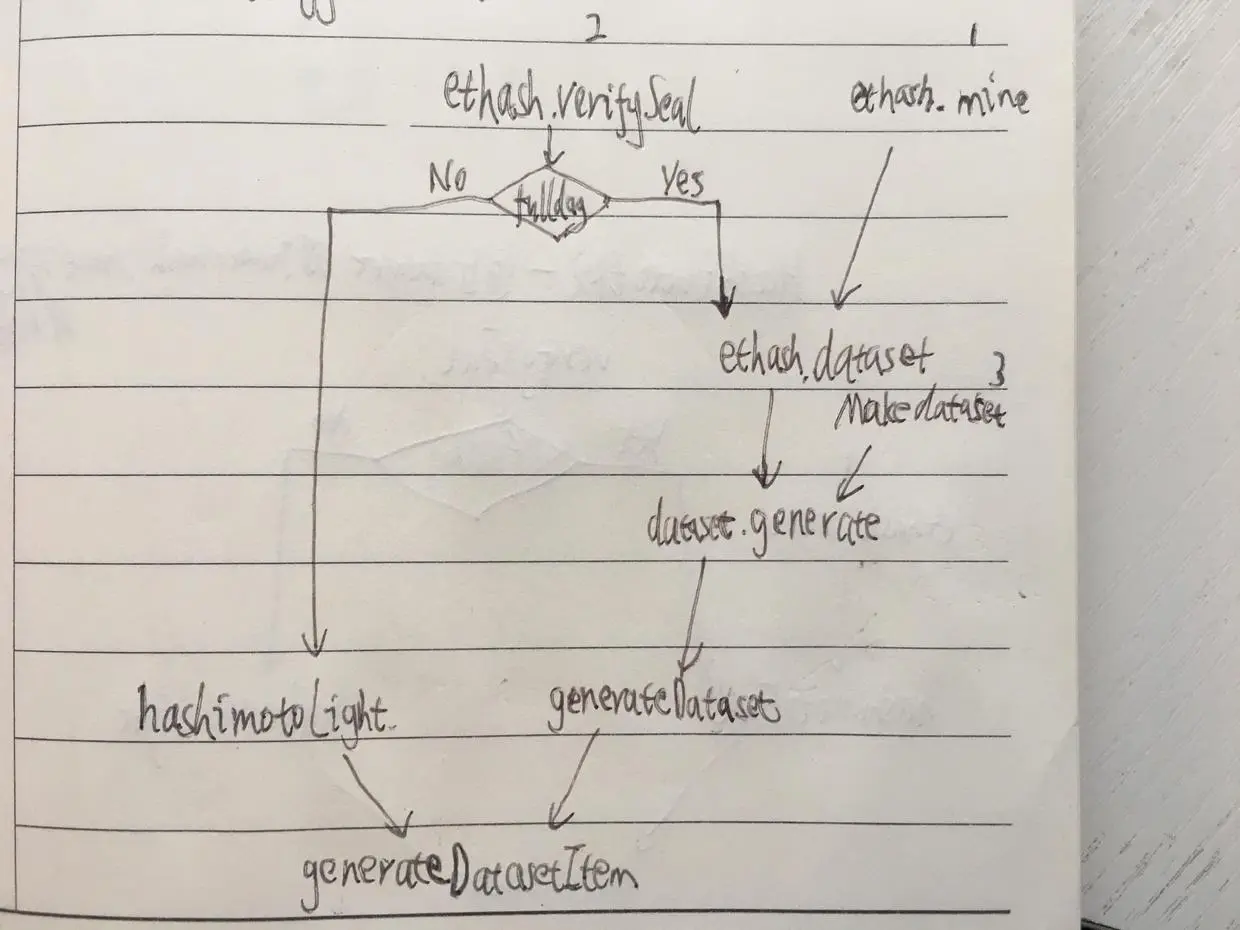 2 1
ethash.verifySeal ethash.mine
No Yes
fulldag
ethash.dataset 3
Makedataset
dataset.generate
hashimotoLight generateDataset
generateDatasetItem